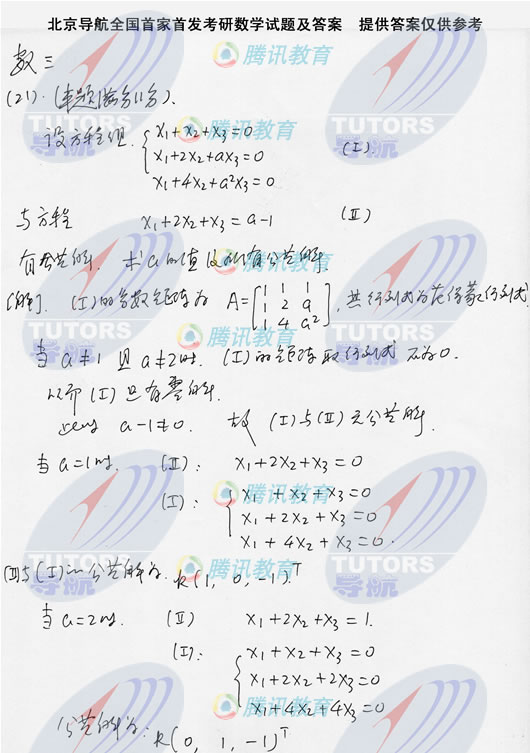 北京导航全国首家首发考研数学试题及答案 提供答案仅供参考
数三
(21). (本题满分11分).
设方程组. { x₁+x₂+x₃=0 (Ⅰ)
x₁+2x₂+ax₃=0
x₁+4x₂+a²x₃=0
与方程 x₁+2x₂+x₃=a-1 (Ⅱ)
有公共解. 求a的值及所有公共解.
[解]. (Ⅰ)的系数矩阵为 A=[1 1 1
1 2 a
1 4 a²], 其行列式为范得蒙行列式
当 a≠1 且 a≠2时. (Ⅰ)的矩阵取行列式 不为0.
从而(Ⅰ)只有零解.
此时 a-1≠0. 故 (Ⅰ)与(Ⅱ)无公共解.
当a=1时. (Ⅱ): x₁+2x₂+x₃=0
(Ⅰ): { x₁+x₂+x₃=0
x₁+2x₂+x₃=0
x₁+4x₂+x₃=0.
(Ⅱ)与(Ⅰ)的公共解为. k(1, 0, -1)ᵀ
当a=2时. (Ⅱ) x₁+2x₂+x₃=1.
(Ⅰ): { x₁+x₂+x₃=0
x₁+2x₂+2x₃=0
x₁+4x₂+4x₃=0
公共解为: k(0, 1, -1)ᵀ
腾讯教育
TUTORS
导航